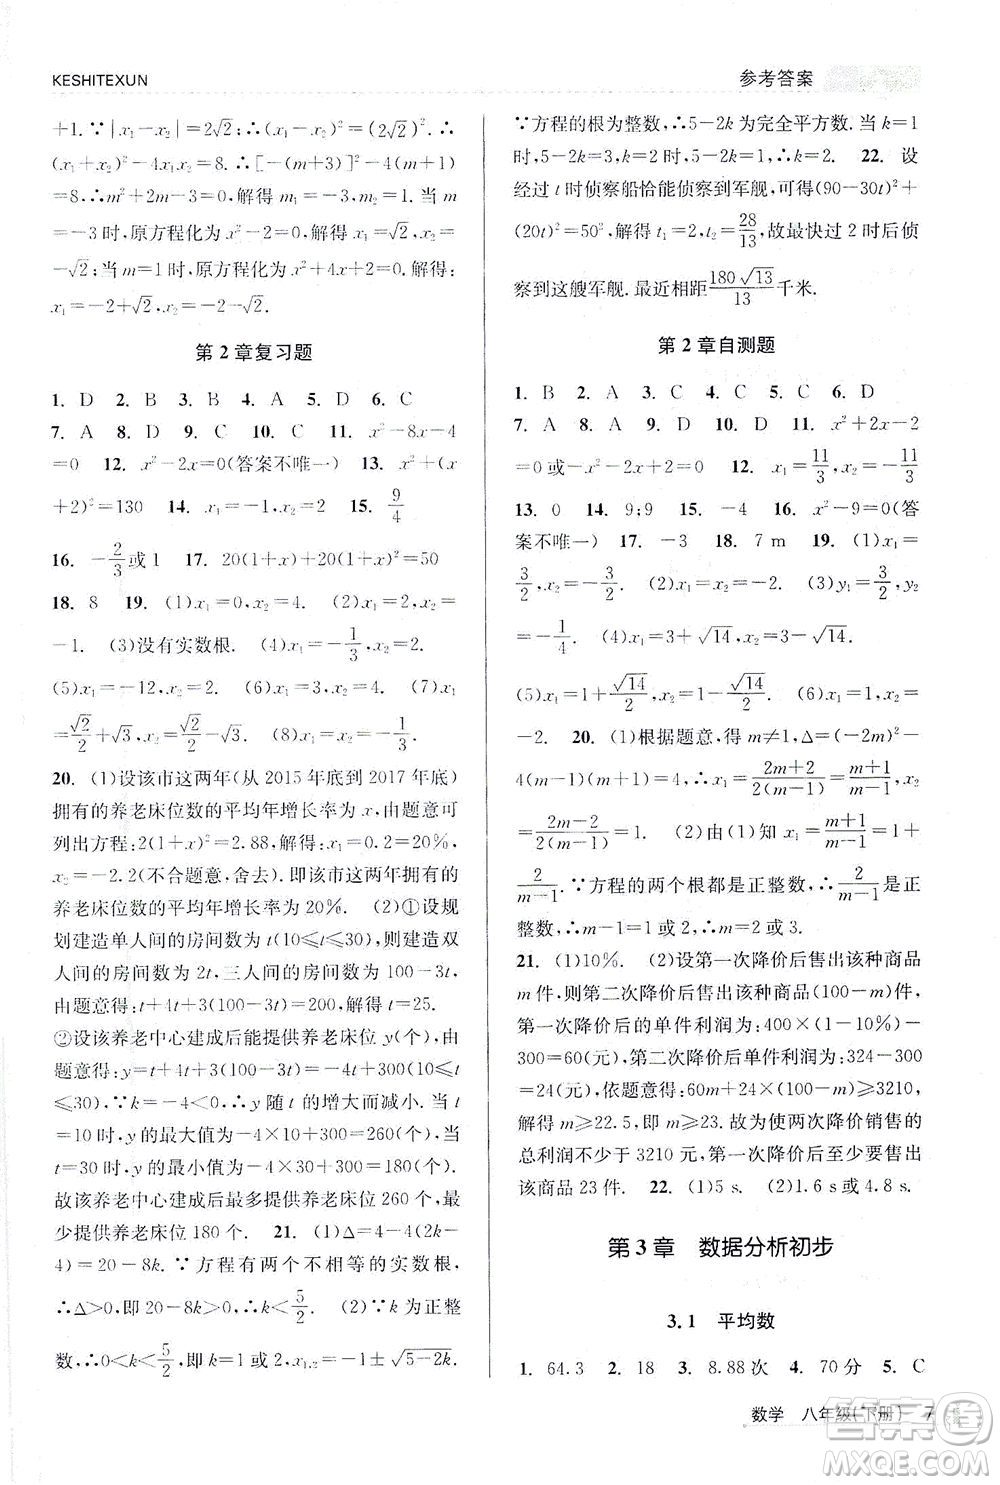 KESHITEXUN
参考答案
+1.∵|x₁-x₂|=2√2;∴(x₁-x₂)²=(2√2)².∴
(x₁+x₂)²-4x₁x₂=8.∴[-(m+3)]²-4(m+1)
=8.∴m²+2m-3=0,解得 m₁=-3,m₂=1.当 m
=-3 时,原方程化为 x²-2=0,解得:x₁=√2,x₂=
-√2;当 m=1 时,原方程化为 x²+4x+2=0.解得:
x₁=-2+√2,x₂=-2-√2.
第 2 章复习题
1. D 2. B 3. B 4. A 5. D 6. C
7. A 8. D 9. C 10. C 11. x²-8x-4
=0 12. x²-2x=0(答案不唯一) 13. x²+(x
+2)²=130 14. x₁=-1,x₂=3 15. 9/4
16. -2/3或 1 17. 20(1+x)+20(1+x)²=50
18. 8 19. (1)x₁=0,x₂=4. (2)x₁=x₂=
-1. (3)没有实数根. (4)x₁=-1/3,x₂=4.
(5)x₁=-12,x₂=2. (6)x₁=3,x₂=4. (7)x₁
=√2/2+√3,x₂=√2/2-√3. (8)x₁=3,x₂=-1/3.
20. (1)设该市这两年(从 2015 年底到 2017 年底)
拥有的养老床位数的平均年增长率为 x,由题意可
列出方程:2(1+x)²=2.88,解得:x₁=0.2=20%,
x₂=-2.2(不合题意,舍去).即该市这两年拥有的
养老床位数的平均年增长率为 20%. (2)①设规
划建造单人间的房间数为 t(10≤t≤30),则建造双
人间的房间数为 2t,三人间的房间数为 100-3t,
由题意得:t+4t+3(100-3t)=200,解得 t=25.
②设该养老中心建成后能提供养老床位 y 个,由
题意得:y=t+4t+3(100-3t)=-4t+300(10≤t
≤30),∵k=-4<0,∴y 随 t 的增大而减小.当 t
=10 时,y 的最大值为-4×10+300=260(个),当
t=30 时,y 的最小值为-4×30+300=180(个).
故该养老中心建成后最多提供养老床位 260 个,最
少提供养老床位 180 个. 21. (1)Δ=4-4(2k-
4)=20-8k.∵方程有两个不相等的实数根,
∴Δ>0,即 20-8k>0,∴k<5/2. (2)∵k 为正整
数,∴0<k<5/2,即 k=1 或 2,x₁,₂=-1±√(5-2k).
∵方程的根为整数,∴5-2k 为完全平方数.当 k=1
时,5-2k=3;当 k=2 时,5-2k=1.∴k=2. 22. 设
经过 t 时侦察船恰能侦察到军舰,可得(90-30t)²+
(20t)²=50²,解得 t₁=2,t₂=28/13,故最快过 2 时后侦
察到这艘军舰.最近相距180√13/13千米.
第 2 章自测题
1. B 2. A 3. C 4. C 5. C 6. D
7. A 8. D 9. C 10. A 11. x²+2x-2
=0或-x²-2x+2=0 12. x₁=11/3,x₂=-11/3
13. 0 14. 9;9 15. -4 16. x²-9=0(答
案不唯一) 17. -3 18. 7 m 19. (1)x₁=
3/2,x₂=-3/2. (2)x₁=x₂=-2. (3)y₁=3/2,y₂
=-1/4. (4)x₁=3+√14,x₂=3-√14.
(5)x₁=1+√14/2,x₂=1-√14/2. (6)x₁=1,x₂=
-2. 20. (1)根据题意,得 m≠1,Δ=(-2m)²-
4(m-1)(m+1)=4,∴x₁=2m+2/2(m-1)=m+1/m-1,x₂
=2m-2/2(m-1)=1. (2)由(1)知 x₁=m+1/m-1=1+
2/m-1.∵方程的两个根都是正整数,∴2/m-1是正
整数,∴m-1=1 或 2,∴m=2 或 3.
21. (1)10%. (2)设第一次降价后售出该种商品
m 件,则第二次降价后售出该种商品(100-m)件,
第一次降价后的单件利润为:400×(1-10%)-
300=60(元),第二次降价后单件利润为:324-300
=24(元),依题意得:60m+24×(100-m)≥3210,
解得:m≥22.5,∴m≥23.故为使两次降价销售的
总利润不少于 3210 元,第一次降价后至少要售出
该商品 23 件. 22. (1)5 s. (2)1.6 s或 4.8 s.
第 3 章 数据分析初步
3.1 平均数
1. 64.3 2. 18 3. 8.88 次 4. 70 分 5. C
数学 八年级(下册) 7